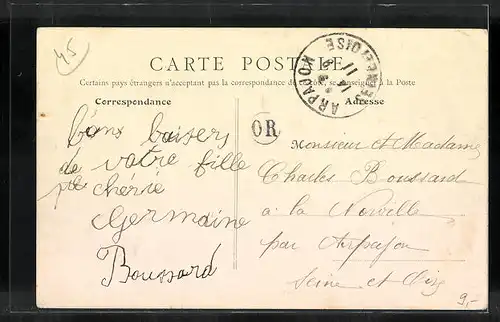 45
CARTE POSTALE
Certains pays étrangers n'acceptant pas la correspondance de ce côté, se renseigner à la Poste
Correspondance
Adresse
ARPAJON
SEINE-ET-OISE
OR
bons baisers
de votre fille
chérie
Germaine
Boussard
Monsieur et Madame
Charles Boussard
à la Norville
par Arpajon
Seine et Oise
9,-